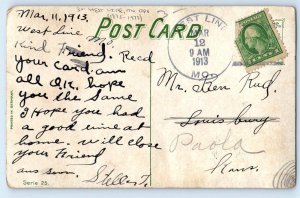 Mar, 11, 1913.
West Line Mo
Kind Friend. Recd
your card. am
all O.K. hope
you the Same
I hope you had
a good time at
home. will close
your Friend
ans soon. Stella T.
Serie 25.
PRINTED IN GERMANY.
POST CARD
WEST LINE
MAR
12
9 AM
1913
MO.
Mr. Ben Rud,
Louisburg
Paola
Kans.